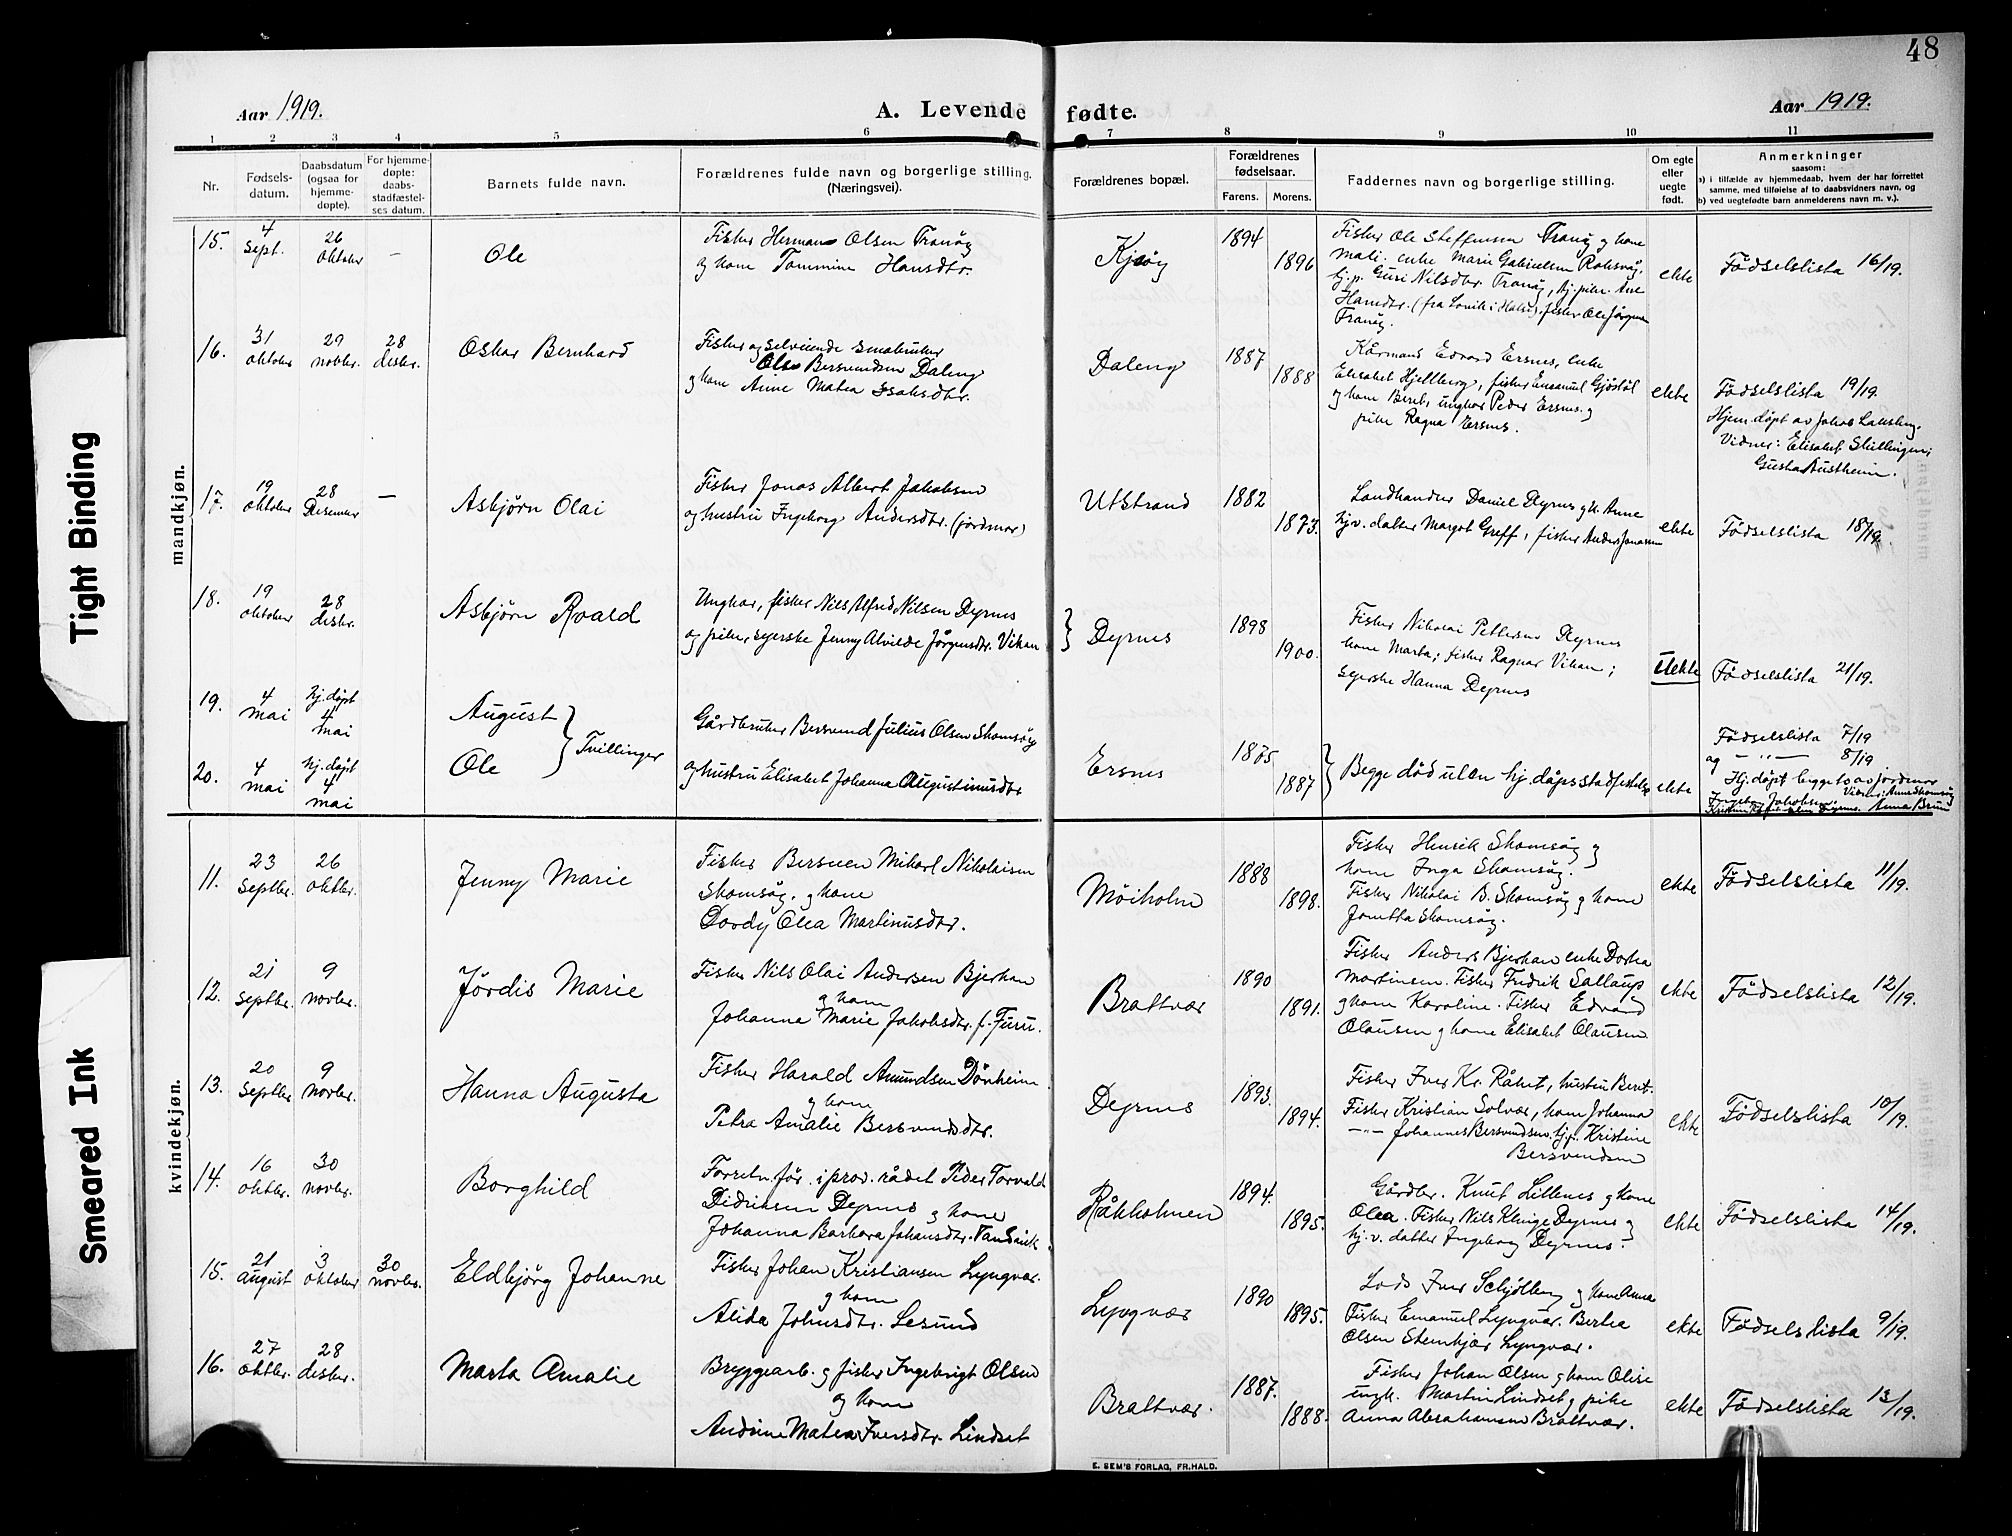 48
Aar 1919.
A. Levende fødte.
Aar 1919.
1 2 3 4 5 6 7 8 9 10 11
Nr.
Fødsels-
datum.
Daabsdatum
(ogsaa for
hjemme-
døpte).
For hjemme-
døpte:
daabs-
stadfæstel-
ses datum.
Barnets fulde navn.
Forældrenes fulde navn og borgerlige stilling.
(Næringsvei).
Forældrenes bopæl.
Forældrenes
fødselsaar.
Farens. Morens.
Faddernes navn og borgerlige stilling.
Om egte
eller
uegte
født.
Anmerkninger
saasom:
a) i tilfælde av hjemmedaab, hvem der har forrettet
samme, med tilføielse af to daabsvidners navn, og
b) ved uegtefødte barn anmelderens navn m. v.).
mandkjøn.
15.
4
Sept.
26
oktober
—
Ole
Fisker Herman Olsen Tranöy
og kone Tommine Hansdtr.
Kjöy
1894
1896
Fisker Ole Steffensen Tranöy og kone
Mali. enke Marie Gabrielsen Roksvåg.
hj.p. Guri Nilsdtr. Tranöy, hj.pike. Ane
Hansdtr. (fra Lervik i Halsa), fisker Ole Jörgen
Tranöy.
ekte
Födselslista 16/19.
16.
31
oktober
29
novbr.
28
desbr.
Oskar Bernhard
Fisker og selveiende småbruker
Ole Bersvendsen Daleng
og kone Anne Matea Isaksdtr.
Daleng
1887
1888
Kårmand Edvard Ersnes, enke
Elisabet Hjellberg, fisker Emanuel Gjöstöl
og kone Beret, ungkar Peder Ersnes og
pike Ragna Ersnes.
ekte
Födselslista 19/19.
Hjem.döpt av Jakob
Vidner: Elisabet Skillingen,
Gusta Austheim.
17.
19
oktober
28
Desember
—
Asbjörn Olai
Fisker Jonas Albert Jakobsen
og hustru Ingeborg Andersdtr. (jordmor)
Utstrand
1882
1873.
Landhandler Daniel Dyrnes og h. Anne
hjv. datter Margot Greff, fisker Anders Jonassen
ekte
Födselslista 18/19.
18.
19
oktober
28
desbr.
Asbjörn Roald
Ungkar, fisker Nils Alfred Nilsen Dyrnes
og pike, syerske Jenny Alvilde Jörgensdtr. Vikan
Dyrnes
1898
1900.
Fisker Nikolai Pettersen Dyrnes
kone Marta; fisker Ragnar Vikan;
syerske Hanna Dyrnes
Uekte
Födselslista 21/19.
19.
4
mai
hj.döpt
4
mai
August
20.
4
mai
hj.döpt
4
mai
Ole
Tvillinger
Gårdbruker Bersvend Julius Olsen Skomsöy
og hustru Elisabet Johanna Augustinusdtr
Ersnes
1875
1887
Begge död uten hj.dåpsstadfestelse
ekte
Födselslista 7/19
og — " — 8/19
Hj.döpt begge to av jordmor
Ingeborg Jakobsen Vidner: Anne Skomsöy
Dyrnes. Anna Bruun
kvindekjøn.
11.
23
Septbr.
26
oktbr.
Jenny Marie
Fisker Bersven Mikael Nikolaisen
Skomsöy. og kone
Dordy Olea Martinusdtr.
Möiholm
1888
1898.
Fisker Henrik Skomsöy og
kone Inga Skomsöy.
Fisker Nikolai B. Skomsöy og kone
Jonetta Skomsöy.
ekte
Födselslista 11/19.
12.
21
Septbr.
9
novbr.
Jördis Marie
Fisker Nils Olai Andersen Bjerkan
og kone
Johanna Marie Jakobsdtr. f. Furu.
Brattvær
1890
1891.
Fisker Anders Bjerkan enke Dortea
Martinsen. Fisker Fredrik Sallaup
og kone Karoline. Fisker Edvard
Olausen og kone Elisabet Olausen
ekte
Födselslista 12/19.
13.
20
Septbr
9
novbr.
Hanna Augusta
Fisker Harald Amundsen Dönheim
og kone
Petra Amalie Bersvendsdtr.
Dyrnes
1893.
1894.
Fisker Iver Kr. Råket, hustru Beret.
Fisker Kristian Solvær, kone Johanna
— " — Johannes Bersvendsen. hj.p. Kristine
Bersvendsen
ekte
Födselslista 10/19.
14.
16
oktbr.
30
novbr.
Borghild
Forretn.för. i prov. rådet Peder Torvald
Didriksen Dyrnes og kone
Johanna Barbara Johansdtr.
Råkholmen
1894.
1895.
Gårdbr. Knut Lillenes og kone
Olea. Fisker Nils Klinge Dyrnes og
hj. v. datter Ingeborg Dyrnes.
ekte
Födselslista 14/19.
15.
21
august
3
oktober
30
novbr.
Eldbjörg Johanne
Fisker Johan Kristiansen Lyngvær.
og kone
Alida Johnsdtr. Lesund
Lyngvær
1890
1895.
Lods Iver Schjölberg og kone Anna
Fisker Emanuel Lyngvær. Bertea
Olsen Steinkjær Lyngvær.
ekte
Födselslista 9/19.
16.
27
oktbr.
28
desbr.
Marta Amalie
Bryggearb. og fisker Ingebrigt Olsen
og kone
Andrine Matea Iversdtr. Lindset
Brattvær.
1887.
1888.
Fisker Johan Olsen og kone Olise
ungk. Martin Lindset og pike
Anna Abrahamsen Brattvær.
ekte
Födselslista 13/19.
E. SEM'S FORLAG, FR.HALD.
Tight Binding
Smeared Ink